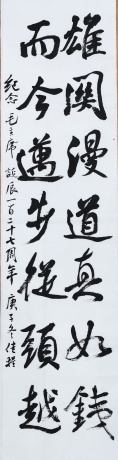 雄関漫道真如銕
而今邁步從頭越
紀念毛主席誕辰一百二十七周年 庚子冬佳楑